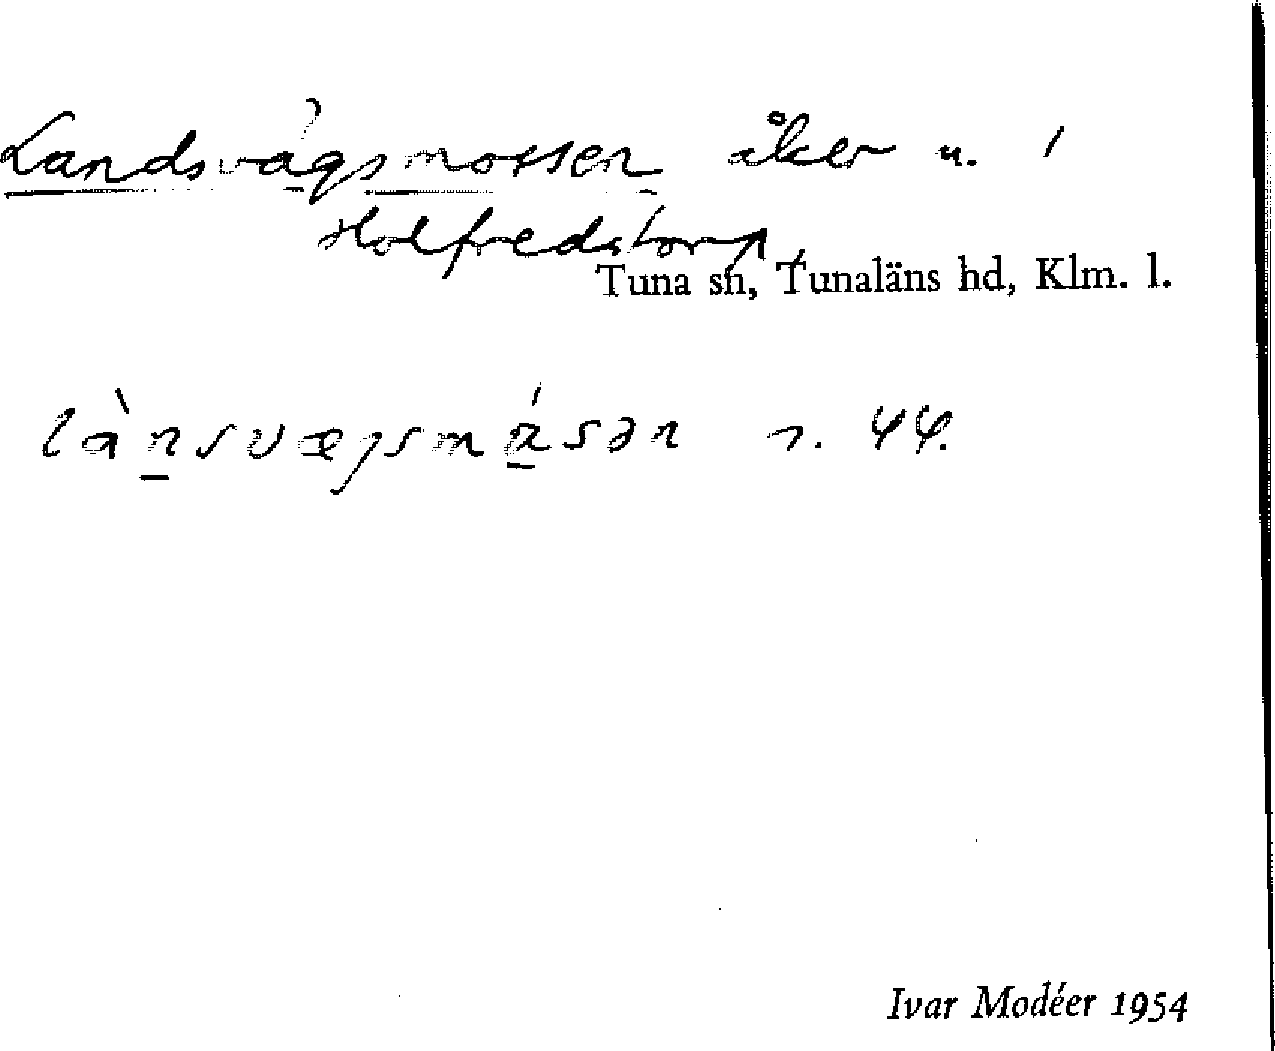 Landsvägsmossen åker u. 1
Holfredstorp
Tuna sn, Tunaläns hd, Klm. l.
44.
Ivar Modéer 1954